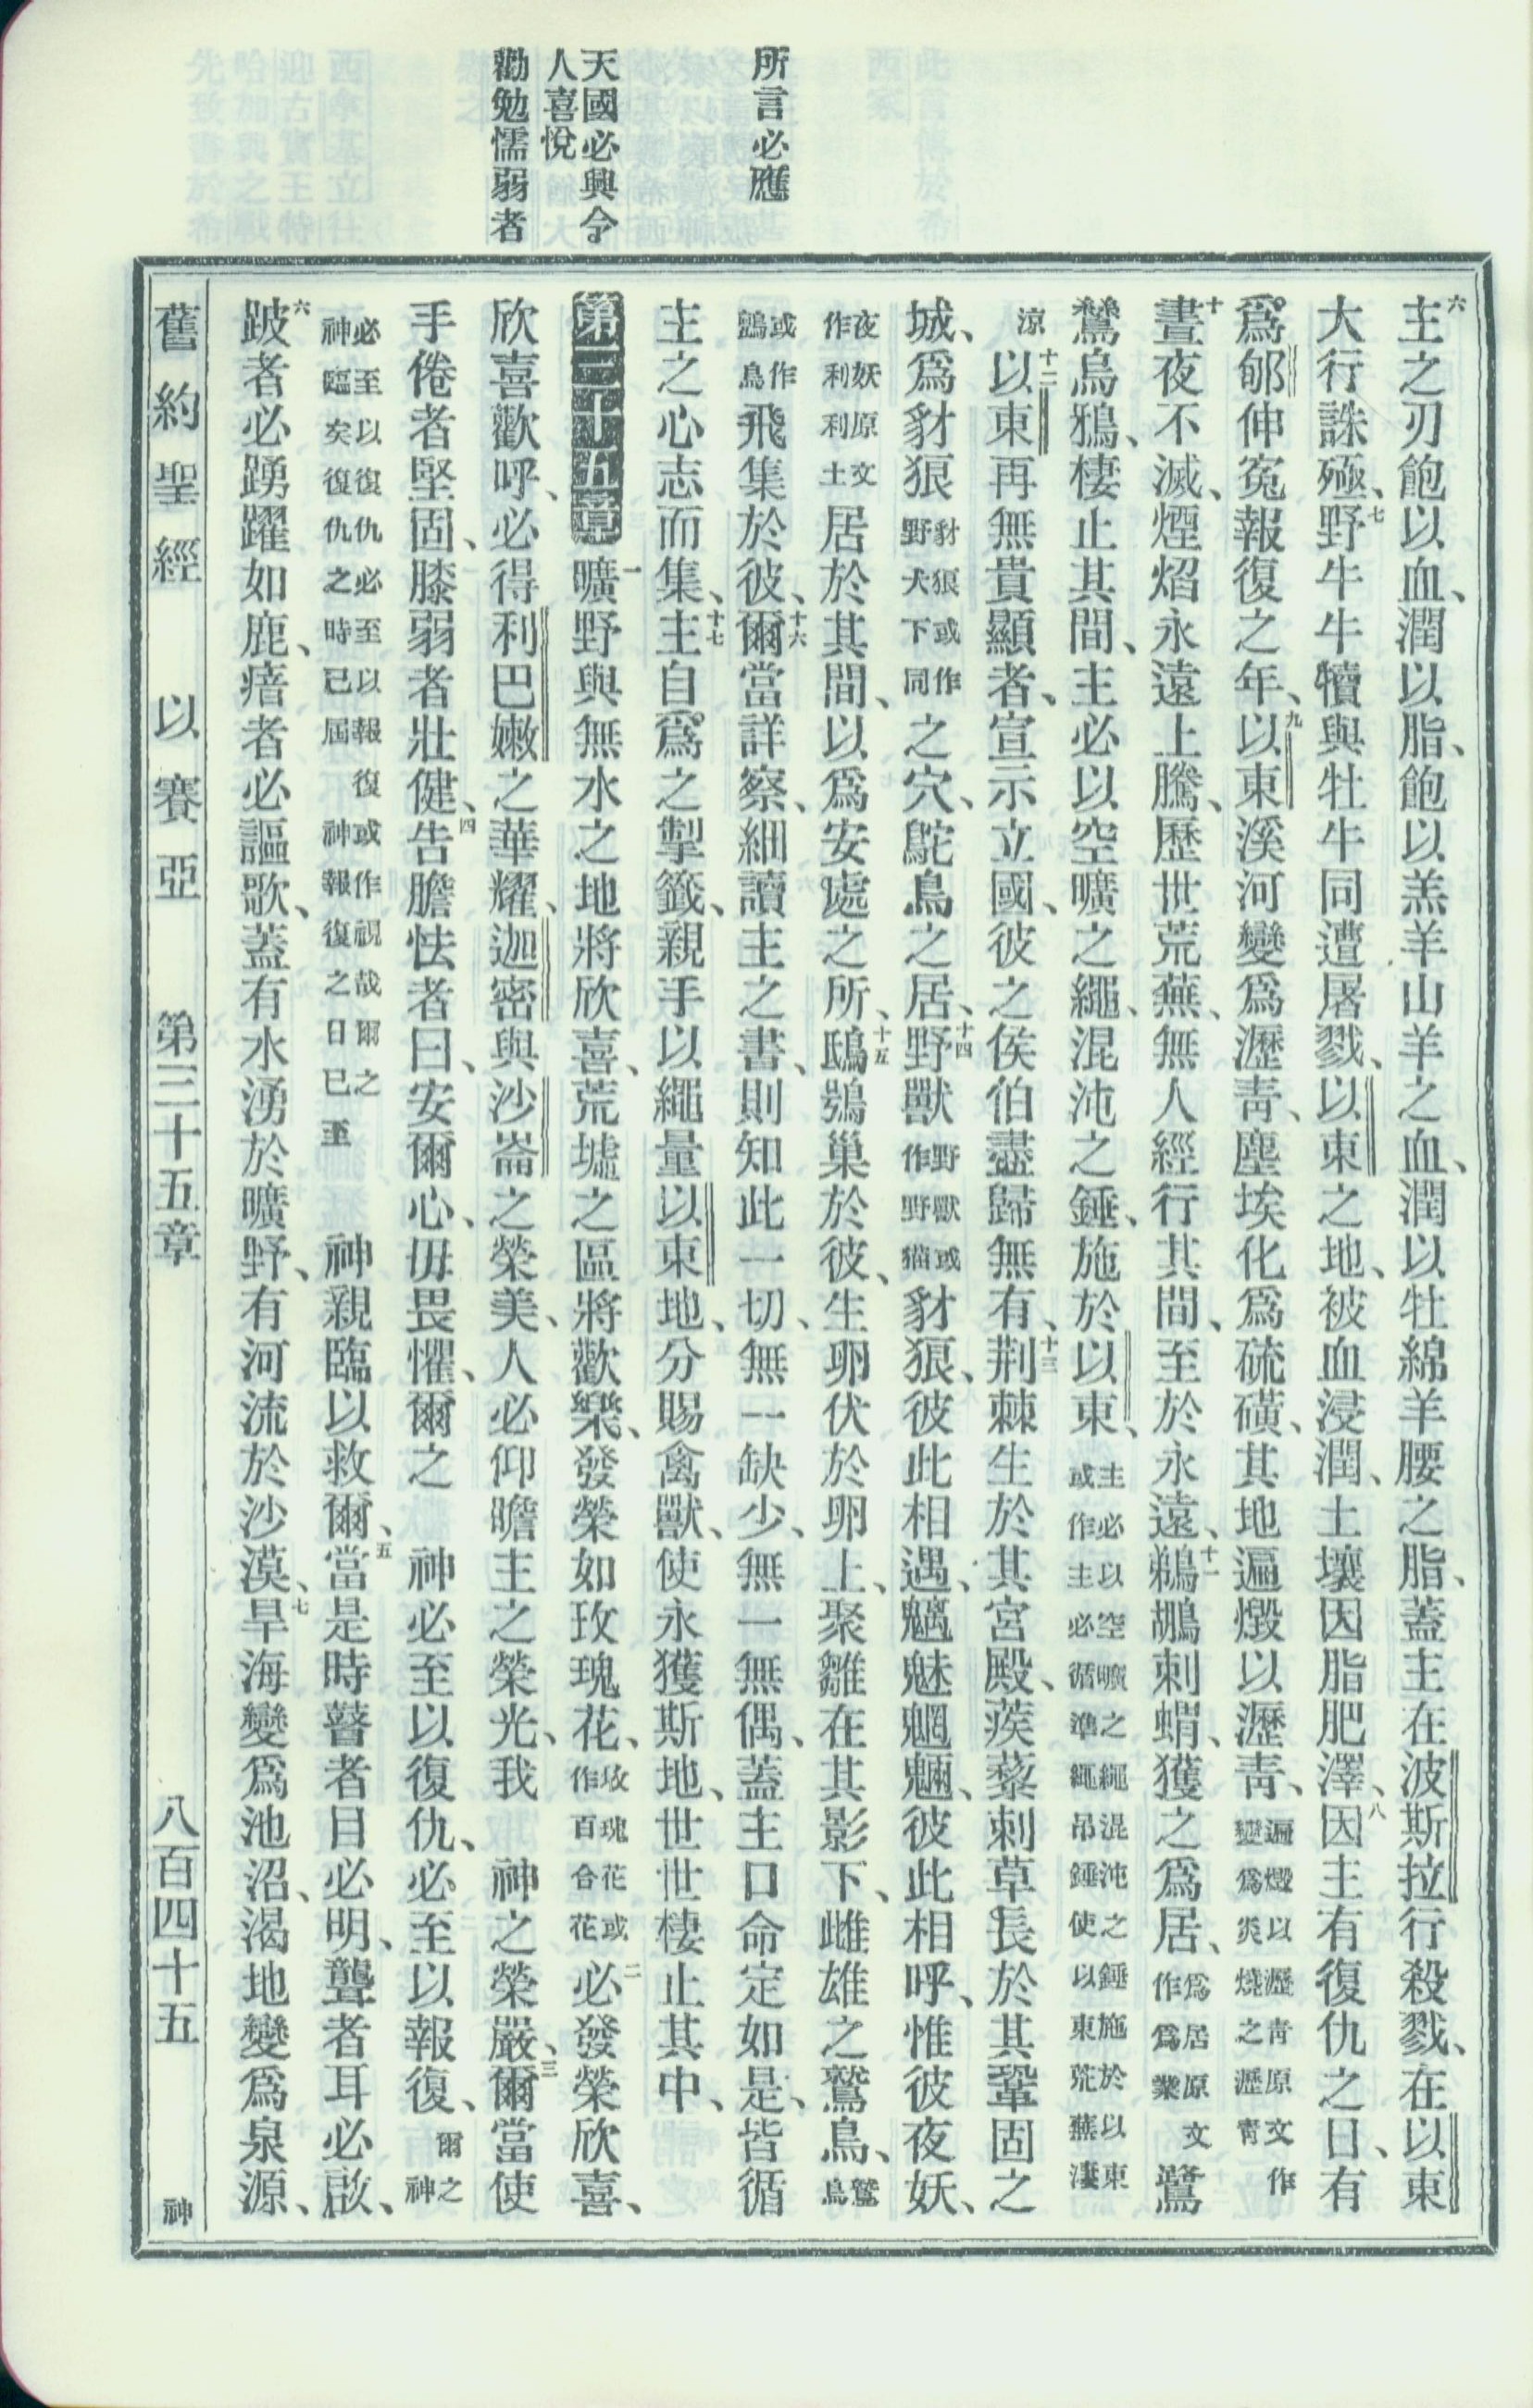 所言必應
天國必興令
人喜悅
勸勉懦弱者
六主之刃飽以血、潤以脂、飽以羔羊山羊之血、潤以牡綿羊腰之脂、蓋主在波斯拉行殺戮、在以東
大行誅殛、七野牛牛犢與牡牛同遭屠戮、以東之地、被血浸潤、土壤因脂肥澤、八因主有復仇之日、有
爲郇伸寃報復之年、九以東溪河變爲瀝青、塵埃化爲硫磺、其地遍燬以瀝青、遍燬以瀝青原文作變爲炎燒之瀝青
十晝夜不滅、煙焰永遠上騰、歷世荒蕪、無人經行其間、至於永遠、十一鵜鶘刺蝟、獲之爲居、爲居原文作爲業鷺
鶿烏鴉、棲止其間、主必以空曠之繩、混沌之錘、施於以東、主必以空曠之繩混沌之錘施於以東或作主必循準繩吊錘使以東荒蕪凄
涼十二以東再無貴顯者、宣示立國、彼之侯伯盡歸無有、十三荆棘生於其宮殿、蒺藜刺草長於其鞏固之
城、爲豺狼豺狼或作野犬下同之穴、鴕鳥之居、十四野獸野獸或作野猫豺狼、彼此相遇、魑魅魍魎、彼此相呼、惟彼夜妖、
夜妖原文作利利士居於其間、以爲安處之所、十五鴟鴞巢於彼、生卵伏於卵上、聚雛在其影下、雌雄之鷲鳥、鷲鳥
或作鷂鳥飛集於彼、十六爾當詳察、細讀主之書、則知此一切、無一缺少、無一無偶、蓋主口命定如是、皆循
主之心志而集、十七主自爲之掣籤、親手以繩量以東地、分賜禽獸、使永獲斯地、世世棲止其中、
第三十五章一曠野與無水之地將欣喜、荒墟之區將歡樂、發榮如玫瑰花、玫瑰花或作百合花二必發榮欣喜、
欣喜歡呼、必得利巴嫩之華耀、迦密與沙崙之榮美、人必仰瞻主之榮光、我 神之榮嚴、三爾當使
手倦者堅固、膝弱者壯健、四告膽怯者曰、安爾心、毋畏懼、爾之 神必至以復仇、必至以報復、爾之神
必至以復仇必至以報復或作視哉爾之神臨矣復仇之時已屆神報復之日已至 神親臨以救爾、五當是時瞽者目必明、聾者耳必啟、
六跛者必踴躍如鹿、瘖者必謳歌、蓋有水湧於曠野、有河流於沙漠、七旱海變爲池沼、渴地變爲泉源、
舊約聖經 以賽亞 第三十五章 八百四十五 神